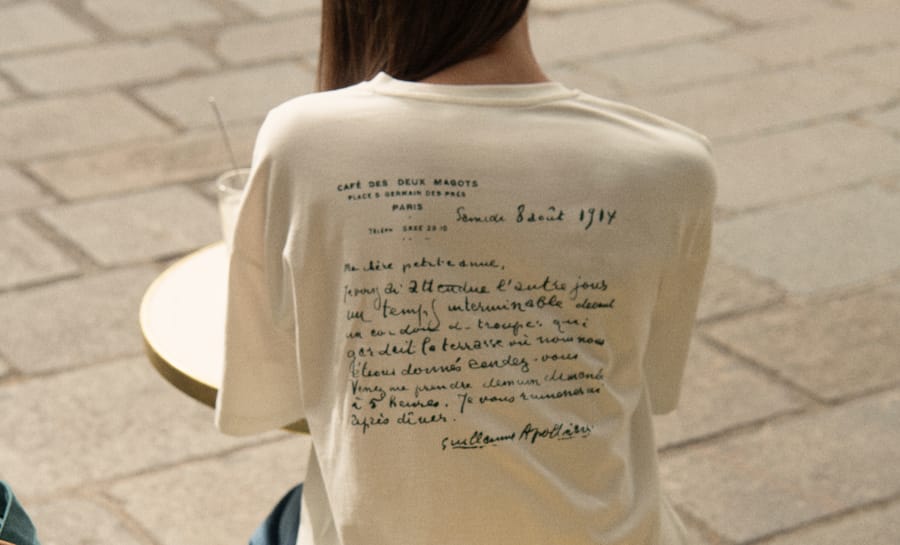 CAFÉ DES DEUX MAGOTS
PLACE S GERMAIN DES PRÉS
PARIS
TÉLÉPH
Samedi 8 août 1914
Ma chère petite amie,
Je vous ai attendue l'autre jour
un temps interminable devant
un cordon de troupes qui
gardait la terrasse où nous nous
étions donnés rendez-vous
Venez me prendre demain dimanche
à 5 heures. Je vous ramènerai
après dîner.
Guillaume Apollinaire